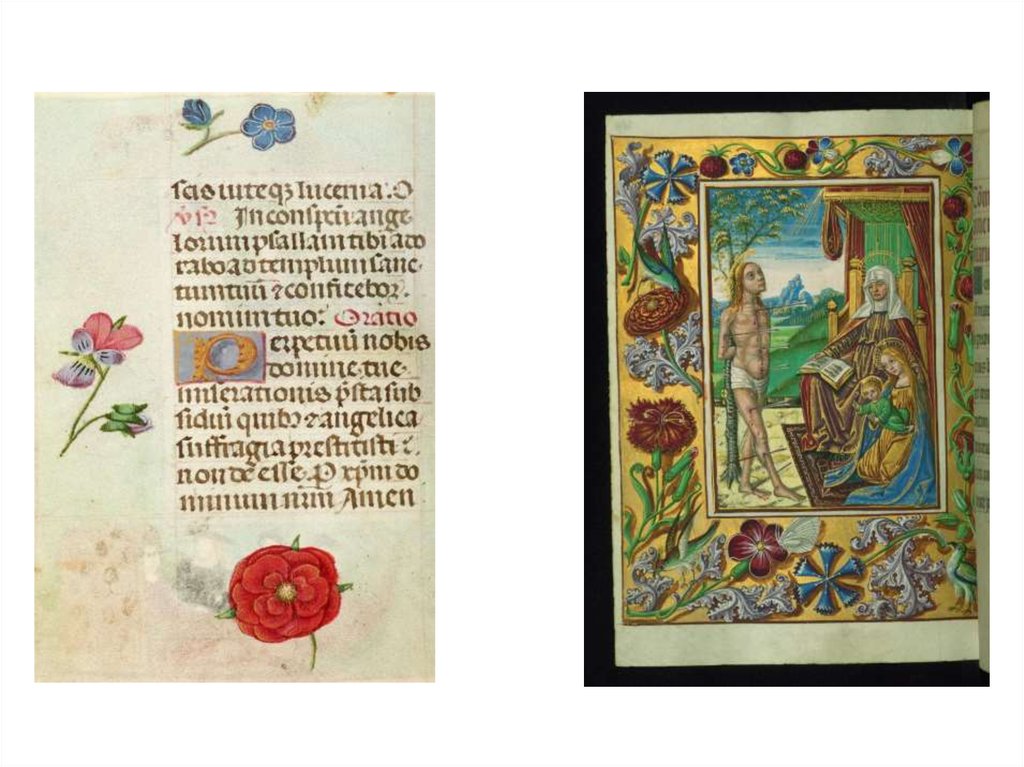 lucerna. O
In conspectū ange
lorum psallam tibi ado
rabo ad templum sanc
tum tuū ⁊ confitebor
nomini tuo: Oratio
Perpetuū nobis
domine tue
miserationis p̄sta sub
sidiū quibꝫ ⁊ angelica
suffragia prestitisti
non deesse. P xp̄m do
minum nr̄m Amen